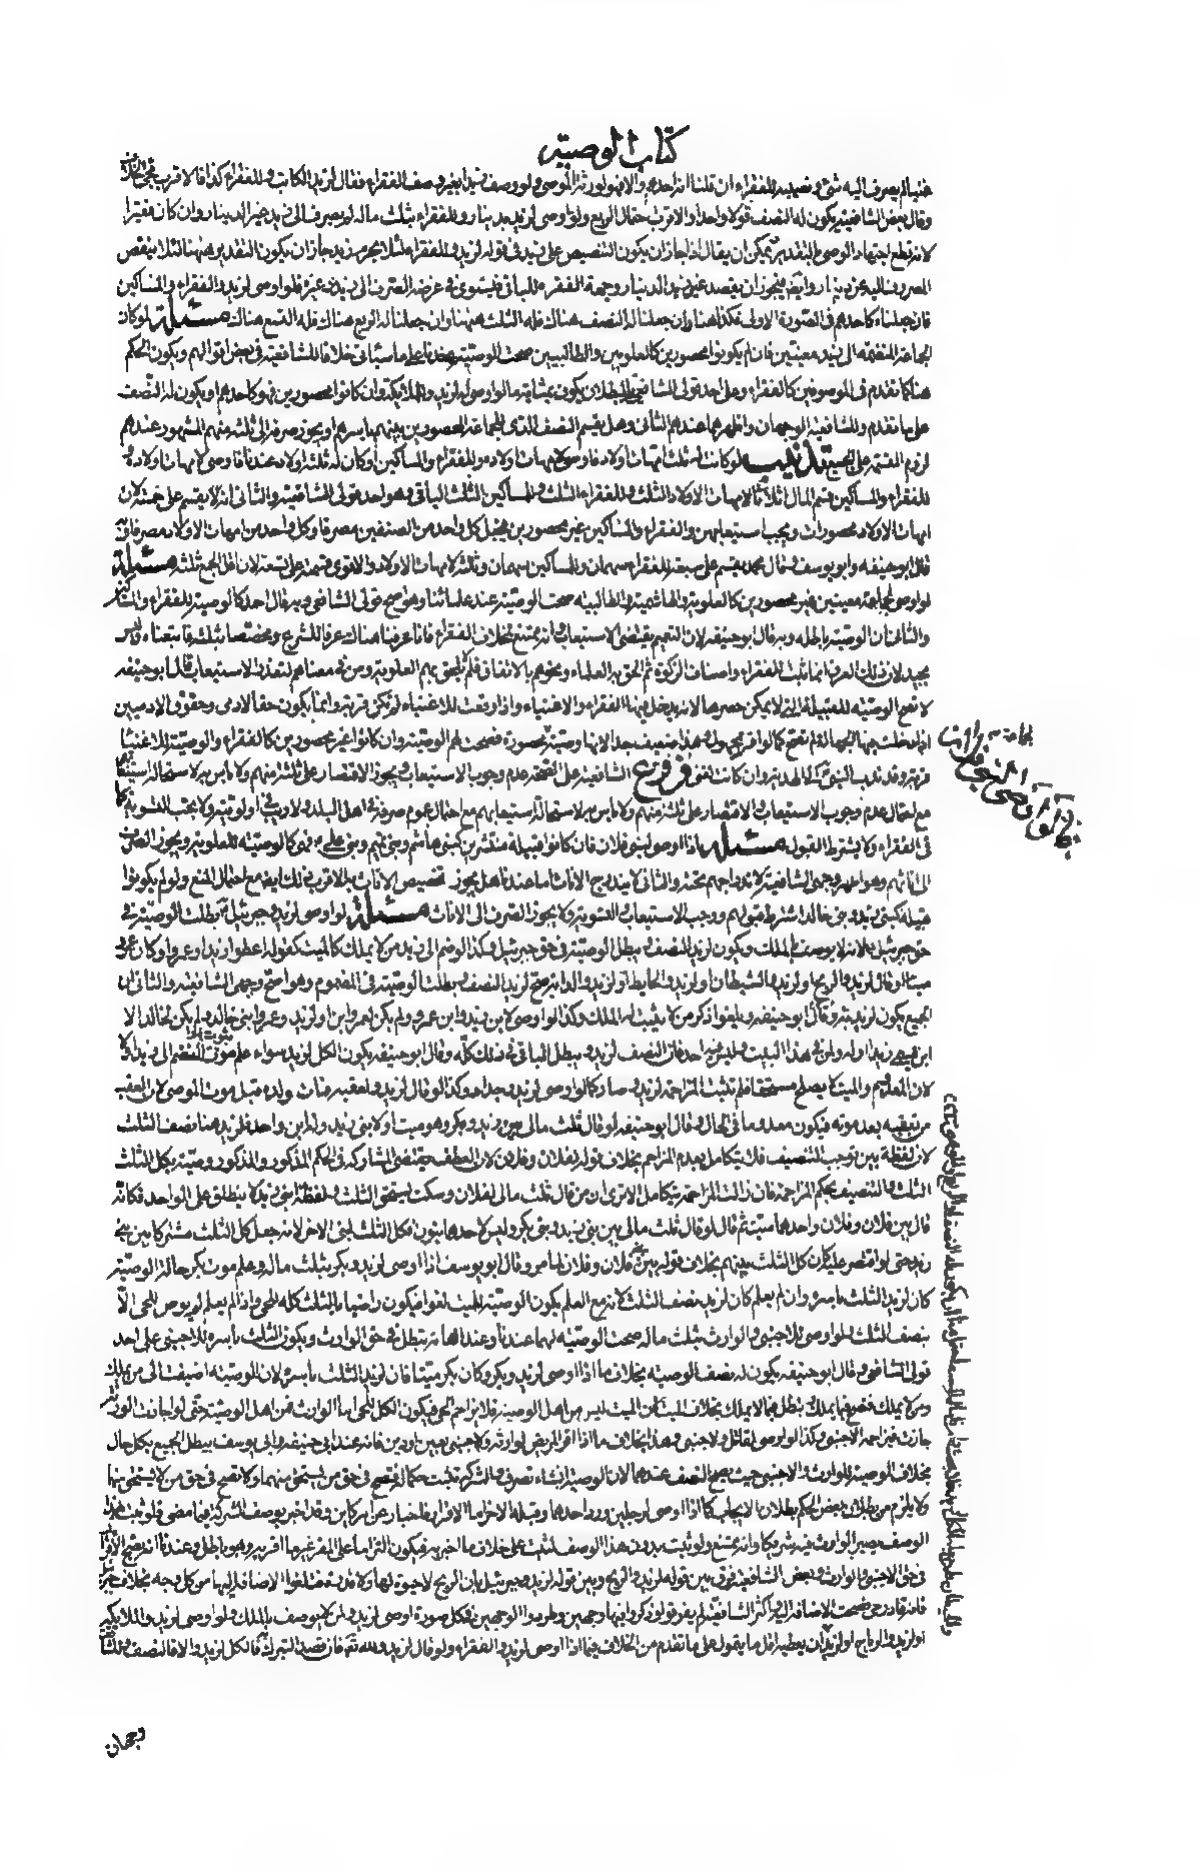 كتاب الوصية
غنيا لم يصرف اليه شئ ونصيبه للفقراء ان قلنا انه احدهم والا فهو لورثة الموصي ولو وصف زيدا بغير وصف الفقراء فقال لزيد الكاتب وللفقراء كذا فالاقرب
وقال بعض الشافعية يكون له النصف قولا واحدا والاقرب احتمال الربع ولو اوصى لزيد بدينار وللفقراء بثلث ماله لم يصرف الى زيد غير الدينار وان كان فقيرا
لانه قطع اجتهاد الوصي بالتقدير ثم يمكن ان يقال اذا جاز ان يكون التنصيص على زيد في قوله لزيد وللفقراء لئلا يحرم زيد جاز ان يكون التقدير ههنا لئلا ينقص
المصروف اليه عن دينار وايضا فيجوز ان يقصد عين زيد بالدينار وجهة الفقراء للباقي فيستوي في غرضه الصرف الى زيد وغيره فلو اوصى لزيد والفقراء والمساكين
فان جعلناه كاحدهم في الصورة الاولى فكذا هنا وان جعلنا له النصف هناك فله الثلث ههنا وان جعلنا له الربع هناك فله التسع هناك مسئلة لو كان
الجماعة المنضمة الى زيد معينين فان لم يكونوا محصورين كالعلويين والطالبيين صحت الوصية عندنا على ما سيأتي خلافا للشافعية في بعض اقوالهم ويكون الحكم
هنا كما تقدم في الموصوفين كالفقراء وعلى احد قولي الشافعي بالبطلان يكون بمثابة ما لو اوصى لزيد والملائكة وان كانوا محصورين فهو كاحدهم او يكون له النصف
على ما تقدم وللشافعية الوجهان واظهرهما عندهم الثاني وهل يقسم النصف الذي للجماعة المحصورين بينهم باسرهم او يجوز صرفه الى ثلثة منهم المشهور عندهم
لزوم القسمة على الجميع تذنيب لو كانت له ثلث امهات اولاد فاوصى لامهات اولاده وللفقراء والمساكين او كان له ثلثة اولاد عندنا فاوصى لامهات اولاده
للفقراء والمساكين قسم المال اثلاثا لامهات الاولاد الثلث وللفقراء الثلث وللمساكين الثلث الباقي وهو احد قولي الشافعية والثاني انه لا يقسم على خمسة لان
امهات الاولاد محصورات ويجب استيعابهن والفقراء والمساكين غير محصورين فيجعل كل واحد من الصنفين مصرفا وكل واحدة من امهات الاولاد مصرفا وبه
قال ابو حنيفه وابو يوسف وقال محمد يقسم على سبعة للفقراء سهمان وللمساكين سهمان وثلثة لامهات الاولاد والاقوى قسمته على تسعة لان اقل الجمع ثلثة مسئلة
لو اوصى لجماعة معينين غير محصورين كالعلوية والهاشمية والطالبية صحت الوصية عند علمائنا وهو اصح قولي الشافعي وبه قال احمد كالوصية للفقراء والمساكين
والثاني ان الوصية باطلة وبه قال ابو حنيفه لان التعميم يقتضي الاستيعاب وانه ممتنع بخلاف الفقراء فانا عرفنا هناك عرفا للشرع ومخصصا بثلثة فاتبعناه وليس
بجيد لان ذلك العرف انما ثبت للفقراء واصناف الزكوة ثم الحق به العلماء ونحوهم بالاتفاق فلم لا يلحق بهم العلوية ومن في معناهم لتعذر الاستيعاب قال ابو حنيفه
لا تصح الوصية للقبيلة التي لا يمكن حصرها لانه يدخل فيها الفقراء والاغنياء واذا وقعت للاغنياء لم تكن قربة وانما يكون حقا لادمي وحقوق الادميين
اذا دخلت فيها الجهالة لم تصح كما لو اقر لمجهول وهذا ضعيف جدا لانها وصية محصورة فصحت لهم الوصية وان كانوا غير محصورين كالفقراء والوصية للاغنياء
قربة وقد ندب النبي الى الهدية وان كانت لغني فروع الشافعية على الصحة عدم وجوب الاستيعاب ويجوز الاقتصار على ثلثة منهم ولا باس به لاستحالة استيعابهم
مع احتمال عدم وجوب الاستيعاب والاقتصار على ثلثة منهم ولا باس به لاستحالة استيعابهم مع احتمال عموم صرفه في اهل البلد ولا ريب في اولويته ولا يجب التسوية كما
في الفقراء ولا يشترط القبول مسئلة اذا اوصى لبني فلان فان كانوا قبيلة منتشرين كبني هاشم وبني تميم وبني علي فهي كالوصية للعلوية ويجوز الصرف
الى اناثهم وهو اظهر وجهي الشافعية لانه يراد بهم عنده والثاني لا يندرج الاناث اما عندنا هل يجوز تخصيص الاناث به الاقرب ذلك ايضا مع احتمال المنع ولو لم يكونوا
قبيلة كبني زيد وبني خالد اشترط قبولهم ووجب الاستيعاب والتسوية ولا يجوز الصرف الى الاناث مسئلة لو اوصى لزيد وجبرئيل بطلت الوصية في
حق جبرئيل لانه لا يوصف بالملك ويكون لزيد النصف ويبطل الوصية في حق جبرئيل وكذا لو ضم الى زيد من لا يملك كالميت كقوله اعطوا زيدا وعمروا وكان عمرو
ميتا او قال لزيد والريح او لزيد والشيطان او لزيد والحايط او لزيد والدابة صح لزيد النصف وبطلت الوصية في المضموم وهو اصح وجهي الشافعية والثاني ان
الجميع يكون لزيد وبه قال ابو حنيفه ويلغو ذكر من لا يثبت له الملك وكذا لو اوصى لابن زيد وابن عمرو ولم يكن لعمرو ابن او لزيد وعمرو ابني خالد ولم يكن لخالد الا
ابن يسمى زيدا او له ولمن في هذا البيت وليس فيه احد فان النصف لزيد ويبطل الباقي في ذلك كله وقال ابو حنيفه يكون الكل لزيد سواء علم موت المنضم الى زيد او لا
لان المعدوم والميت لا يصلح مستحقا فلم تثبت المزاحمة لزيد وصار كما لو اوصى لزيد وجدار وكذا لو قال لزيد ولعقبه فمات ولده قبل موت الموصي لان العقب
من تعقبه بعد موته فيكون معدوما في الحال وقال ابو حنيفه لو قال ثلث مالي بين زيد وبكر وهو ميت او لابني زيد وله ابن واحد فلزيد هنا نصف الثلث
لان لفظة بين توجب التنصيف فلا يتكامل بعدم المزاحم بخلاف قوله لفلان وفلان لان العطف يقتضي المشاركة في الحكم المذكور والمذكور وصية بكل الثلث
الثلث والتنصيف بحكم المزاحمة فان زالت المزاحمة يتكامل الا ترى ان من قال ثلث مالي لفلان وسكت يستحق الثلث ولفظة ابني زيد لا ينطلق على الواحد فكانه
قال بين فلان وفلان واحدهما ميت ثم قال لو قال ثلث مالي بين بني زيد وبني بكر وليس لاحدهما بنون فكل الثلث لبني الاخر لانه جعل كل الثلث مشتركا بين بني
زيد حتى لو اقتصر عليه كان كل الثلث بينهم بخلاف قوله بين فلان وفلان لما مر وقال ابو يوسف اذا اوصى لزيد وبكر بثلث ماله وعلم موت بكر حالة الوصية
كان لزيد الثلث باسره وان لم يعلم كان لزيد نصف الثلث لانه مع العلم يكون الوصية للميت لغوا فيكون راضيا بالثلث كله للحي واذا لم يعلم لم يوص للحي الا
بنصف الثلث ولو اوصى للاجنبي والوارث بثلث ماله صحت الوصية لهما عندنا وعند العامة تبطل في حق الوارث ويكون الثلث باسره للاجنبي على احد
قولي الشافعي وقال ابو حنيفه يكون له نصف الوصية بخلاف ما اذا اوصى لزيد وبكر وكان بكر ميتا فان لزيد الثلث باسره لان الوصية اضيفت الى من يملك
ومن لا يملك فتصح فيما يملك وتبطل فيما لا يملك بخلاف الميت لان الميت ليس من اهل الوصية فلا يزاحم الحي فيكون الكل للحي اما الوارث من اهل الوصية حتى لو اجازت الورثة
جازت فيزاحمه الاجنبي وكذا لو اوصى لقاتل ولاجنبي وهذا بخلاف ما اذا اقر المريض لوارثه ولاجنبي بعين او دين فانه عند ابي حنيفه وابي يوسف يبطل الجميع بكل حال
بخلاف الوصية للوارث والاجنبي حيث يصح النصف عندهما لان الوصية انشاء تصرف والشركة تثبت حكما له فتصح في حق من يستحق منهما ولا تصح في حق من لا يستحق منها
ولا يلزم من بطلان بعض الحكم بطلان الايجاب كما اذا اوصى لرجلين ورد احدهما وقبله الاخر اما الاقرار فاخبار عن امر كاين وقد اخبر بوصف الشركة فيما مضى فلو ثبت هذا
الوصف يصير الوارث فيه شريكا وانه ممتنع ولو ثبت بدون هذا الوصف لثبت على خلاف ما اخبر به فيكون الزاما على المقر غير ما اقر به وهو باطل وعندنا انه يصح الاقرار
في حق الاجنبي والوارث وبعض الشافعية فرق بين قوله لزيد والريح وبين قوله لزيد وجبرئيل بان الريح لا حيوة لها ولا قدرة فتلغو الاضافة اليها من كل وجه بخلاف جبرئيل
فانه قادر حي فصحت الاضافة اليه واكثر الشافعية لم يفرقوا وذكروا فيها وجهين وطردوا الوجهين في كل صورة اوصى لزيد ولمن لا يوصف بالملك ولو اوصى لزيد والملائكة
او لزيد والرياح او لزيد ان يعطيه اقل ما يتمول على ما تقدم من الخلاف فيما اذا اوصى لزيد والفقراء ولو قال لزيد ولله تعالى فان قصد التبرك فالكل لزيد والا فالنصف
وجهان